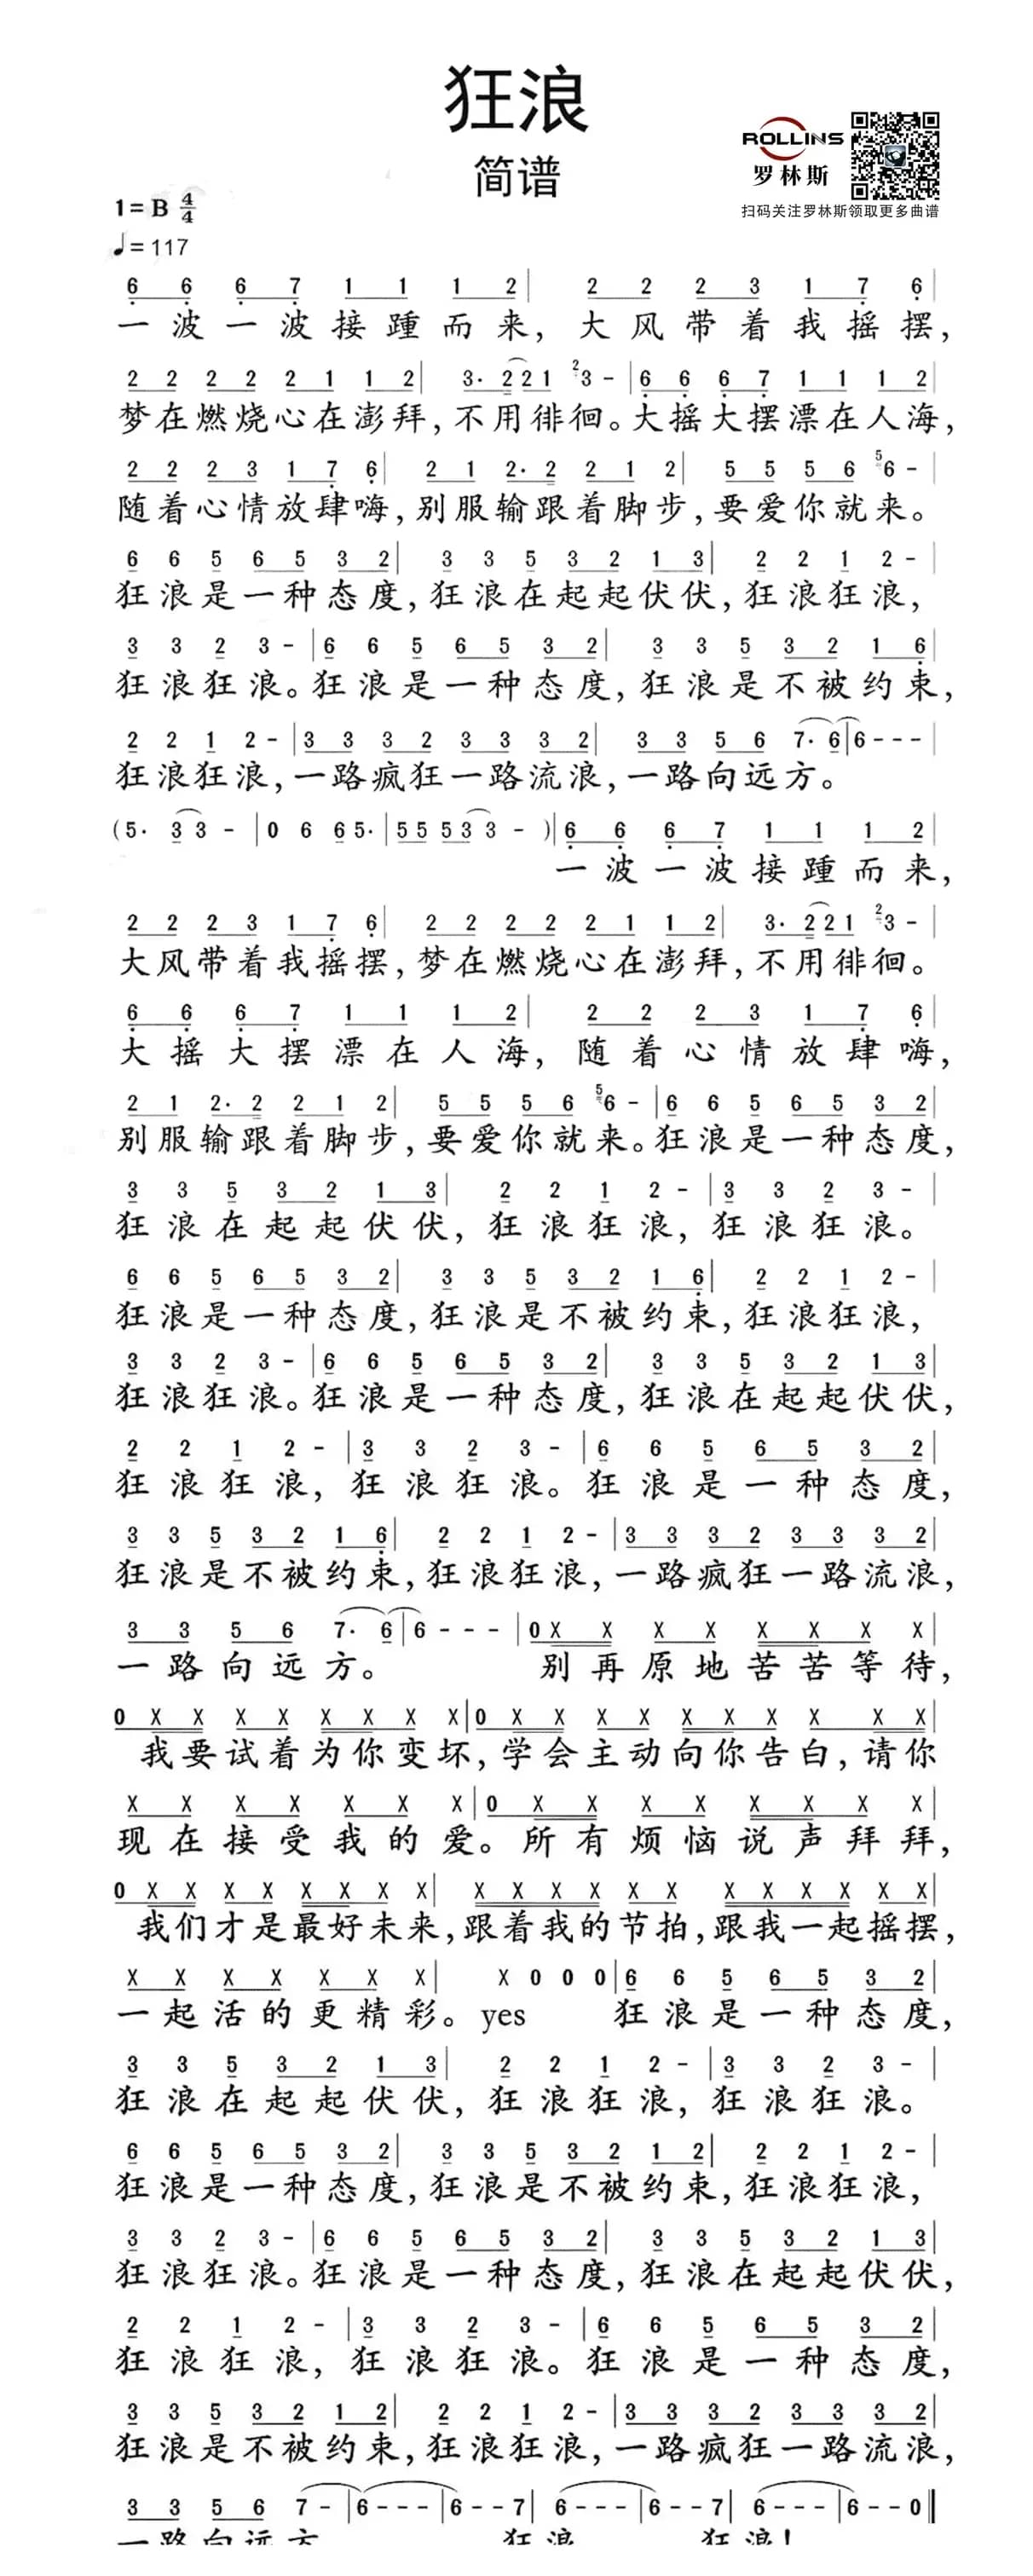 狂浪
简谱
ROLLINS
罗林斯
扫码关注罗林斯领取更多曲谱
1=B 4/4
♩=117
6 6 6 7 1 1 1 2 | 2 2 2 3 1 7 6 |
一波一波接踵而来，大风带着我摇摆，
2 2 2 2 2 1 1 2 | 3· 2 2 1 2 3 - | 6 6 6 7 1 1 1 2 |
梦在燃烧心在澎拜，不用徘徊。大摇大摆漂在人海，
2 2 2 3 1 7 6 | 2 1 2· 2 2 1 2 | 5 5 5 6 5 6 - |
随着心情放肆嗨，别服输跟着脚步，要爱你就来。
6 6 5 6 5 3 2 | 3 3 5 3 2 1 3 | 2 2 1 2 - |
狂浪是一种态度，狂浪在起起伏伏，狂浪狂浪，
3 3 2 3 - | 6 6 5 6 5 3 2 | 3 3 5 3 2 1 6 |
狂浪狂浪。狂浪是一种态度，狂浪是不被约束，
2 2 1 2 - | 3 3 3 2 3 3 3 2 | 3 3 5 6 7· 6 | 6 - - - |
狂浪狂浪，一路疯狂一路流浪，一路向远方。
(5· 3 3 - | 0 6 6 5· | 5 5 5 3 3 - ) | 6 6 6 7 1 1 1 2 |
一波一波接踵而来，
2 2 2 3 1 7 6 | 2 2 2 2 2 1 1 2 | 3· 2 2 1 2 3 - |
大风带着我摇摆，梦在燃烧心在澎拜，不用徘徊。
6 6 6 7 1 1 1 2 | 2 2 2 3 1 7 6 |
大摇大摆漂在人海，随着心情放肆嗨，
2 1 2· 2 2 1 2 | 5 5 5 6 5 6 - | 6 6 5 6 5 3 2 |
别服输跟着脚步，要爱你就来。狂浪是一种态度，
3 3 5 3 2 1 3 | 2 2 1 2 - | 3 3 2 3 - |
狂浪在起起伏伏，狂浪狂浪，狂浪狂浪。
6 6 5 6 5 3 2 | 3 3 5 3 2 1 6 | 2 2 1 2 - |
狂浪是一种态度，狂浪是不被约束，狂浪狂浪，
3 3 2 3 - | 6 6 5 6 5 3 2 | 3 3 5 3 2 1 3 |
狂浪狂浪。狂浪是一种态度，狂浪在起起伏伏，
2 2 1 2 - | 3 3 2 3 - | 6 6 5 6 5 3 2 |
狂浪狂浪，狂浪狂浪。狂浪是一种态度，
3 3 5 3 2 1 6 | 2 2 1 2 - | 3 3 3 2 3 3 3 2 |
狂浪是不被约束，狂浪狂浪，一路疯狂一路流浪，
3 3 5 6 7· 6 | 6 - - - | 0 X X X X X X X X |
一路向远方。别再原地苦苦等待，
0 X X X X X X X X | 0 X X X X X X X X X X |
我要试着为你变坏，学会主动向你告白，请你
X X X X X X X | 0 X X X X X X X X |
现在接受我的爱。所有烦恼说声拜拜，
0 X X X X X X X X | X X X X X X X X X X X X |
我们才是最好未来，跟着我的节拍，跟我一起摇摆，
X X X X X X X | X 0 0 0 | 6 6 5 6 5 3 2 |
一起活的更精彩。yes 狂浪是一种态度，
3 3 5 3 2 1 3 | 2 2 1 2 - | 3 3 2 3 - |
狂浪在起起伏伏，狂浪狂浪，狂浪狂浪。
6 6 5 6 5 3 2 | 3 3 5 3 2 1 2 | 2 2 1 2 - |
狂浪是一种态度，狂浪是不被约束，狂浪狂浪，
3 3 2 3 - | 6 6 5 6 5 3 2 | 3 3 5 3 2 1 3 |
狂浪狂浪。狂浪是一种态度，狂浪在起起伏伏，
2 2 1 2 - | 3 3 2 3 - | 6 6 5 6 5 3 2 |
狂浪狂浪，狂浪狂浪。狂浪是一种态度，
3 3 5 3 2 1 2 | 2 2 1 2 - | 3 3 3 2 3 3 3 2 |
狂浪是不被约束，狂浪狂浪，一路疯狂一路流浪，
3 3 5 6 7 - | 6 - - - | 6 - - 7 | 6 - - - | 6 - - 7 | 6 - - - | 6 - - 0 ‖
一路向远方 狂浪 狂浪！